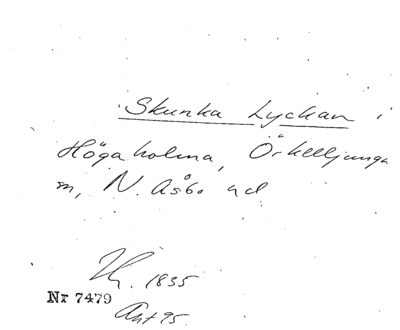 Skunka Lyckan i
Högaholma, Örkelljunga
m, N. Åsbo hd
1835
Nr 7479
Ant 95.